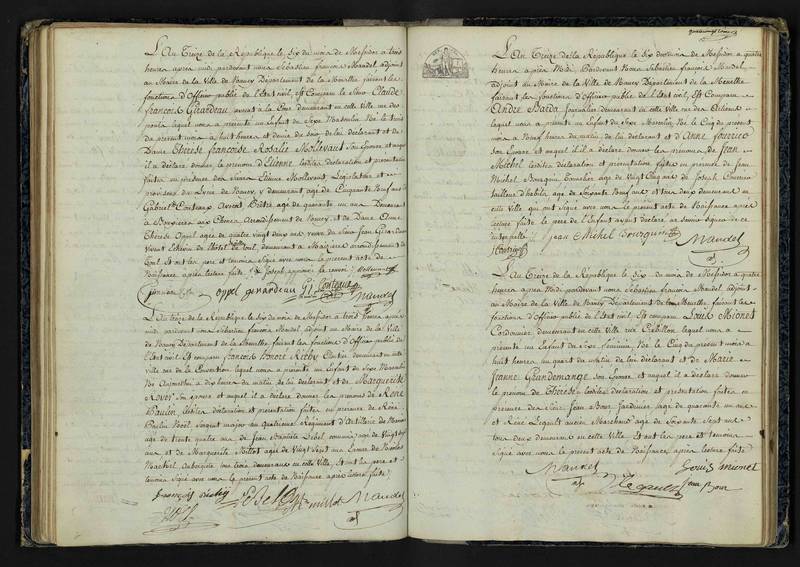 L'An Treize de la République le Six du mois de Messidor a trois
heures après midi pardevant nous Sébastien françois Mandel adjoint
au Maire de la Ville de Nancy Département de la Meurthe faisant les
fonctions d'Officier public de l'Etat civil, Est Comparu le Sieur Claude
françois Girardeau demeurant en cette Ville rue des
lequel nous a présenté un Enfant du Sexe Masculin Né le trois
du présent mois a huit heures et demie du soir de lui déclarant et de
Dame Thérèse françoise Rosalie Mollevaut Son Epouse et auquel
il a déclaré donner le prénom d'Etienne lesdites déclaration et présentation
faites en présence des Sieurs Etienne Mollevaut Législateur et
proviseur du Lycée de Nancy, y demeurant agé de Cinquante Neuf ans
Gabriel Conteaux Prêtre agé de quarante un ans Demeurant
a Bouxières aux Chênes Arrondissement de Nancy, et de Dame Anne
Thérèse Oppel agée de quatre vingt deux ans veuve du Sieur Jean Girardeau
Vivant de l'hôtel de demeurant a Maizières arrondissement de
Toul Et ont les père et témoins Signé avec nous le présent acte de
Naissance après lecture faite, Joseph approuvé le renvoi Mollevaut
oppel girardeau G Conteaux
Mandel
L'An Treize de la République le Six du mois de Messidor a trois heures après
midi pardevant nous Sébastien françois Mandel adjoint au Maire de la Ville
de Nancy Département de la Meurthe, faisant les fonctions d'Officier public de
l'Etat civil Est comparu françois Honoré demeurant en cette
ville rue de la Convention lequel nous a présenté un Enfant du Sexe Masculin
Né Aujourdhui a dix heures du matin de lui déclarant et de Marguerite
Son Epouse et auquel il a déclaré donner les prénoms de René
Paulin, lesdites déclaration et présentation faites en présence de René
Paulin Noël Sergent major au quatrième Régiment d'Artillerie de Marine
agé de trente quatre ans de Jean Baptiste Lebel commis agé de Vingt
ans et de Marguerite Millot agée de Vingt Sept ans Epouse de Nicolas
Aubergiste tous trois demeurans en cette Ville, Et ont les père et
témoins Signé avec nous le présent acte de Naissance après lecture faite
millot Mandel
L'An Treize de la République le Six du mois de Messidor a quatre
heures après Midi Pardevant Nous Sébastien françois Mandel
adjoint au Maire de la Ville de Nancy Département de la Meurthe
faisant les fonctions d'Officier public de l'Etat civil, Est Comparu
André Barda Journalier demeurant en cette Ville rue des
lequel nous a présenté un Enfant du Sexe Masculin, Né le Cinq du présent
mois a Neuf heures du matin, de lui déclarant et d'Anne
Son Epouse et auquel il a déclaré donner les prénoms de Jean
Michel lesdites déclaration et présentation faites en présence de Jean
Michel Bourgoin agé de Vingt Cinq ans et de Joseph
tailleur d'habits, agé de Soixante Neuf ans Et tous deux demeurans en
cette Ville qui ont Signé avec nous le présent acte de Naissance après
lecture faite le père de l'Enfant ayant déclaré ne savoir signer de ce
interpellé
jean Michel Bourguoin Mandel
L'An Treize de la République le Six du mois de Messidor a quatre
heures après midi pardevant nous Sébastien françois Mandel adjoint
au Maire de la Ville de Nancy Département de la Meurthe, faisant les
fonctions d'Officier public de l'Etat civil Est comparu Louis Mionet
Cordonnier demeurant en cette Ville rue Crébillon lequel nous a
présenté un Enfant du Sexe féminin Né le Cinq du présent mois a
huit heures un quart du matin de lui déclarant et de Marie
Jeanne Grandemange son Epouse, et auquel il a déclaré donner
le prénom de Thérèse lesdites déclaration et présentation faites en
présence des Sieurs Jean Bour Jardinier agé de quarante un ans
et René Legault ancien Marchand agé de Soixante Sept ans
tous deux demeurans en cette Ville Et ont les père et témoins
Signé avec nous le présent acte de Naissance, après lecture faite
Mandel Louis mionet
Legault Jean Bour